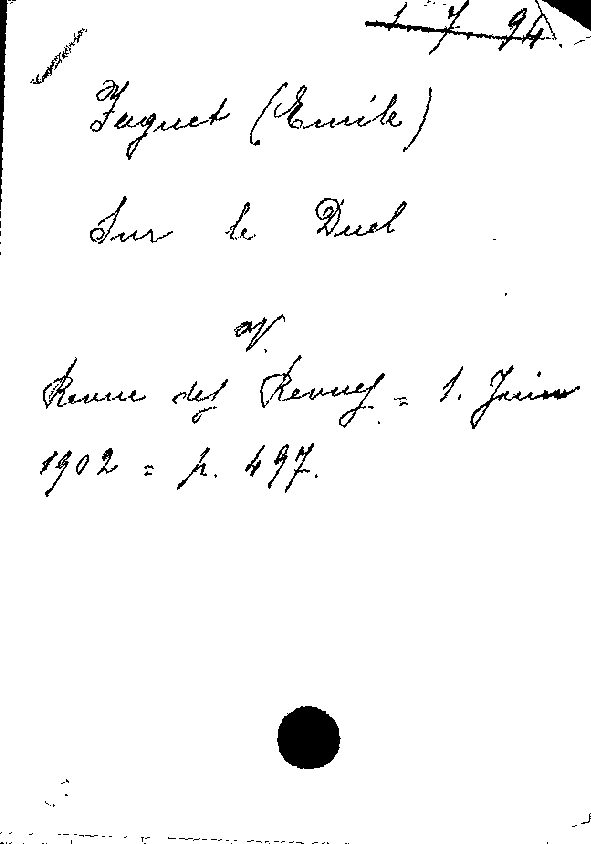 1.7.94.
Faguet (Emile)
Sur le Duel
Revue des Revues = 1. Juin
1902 = p. 497.